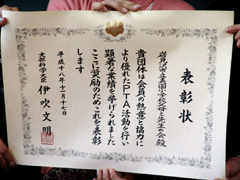 表彰状
岩見沢市立美園小学校母と先生の会殿
貴団体は会員の熱意と協力に
より優れたPTA活動を行い
顕著な業績を挙げられました
ここに奨励のためこれを表彰
します
平成十八年十一月十七日
文部科学大臣 伊吹文明